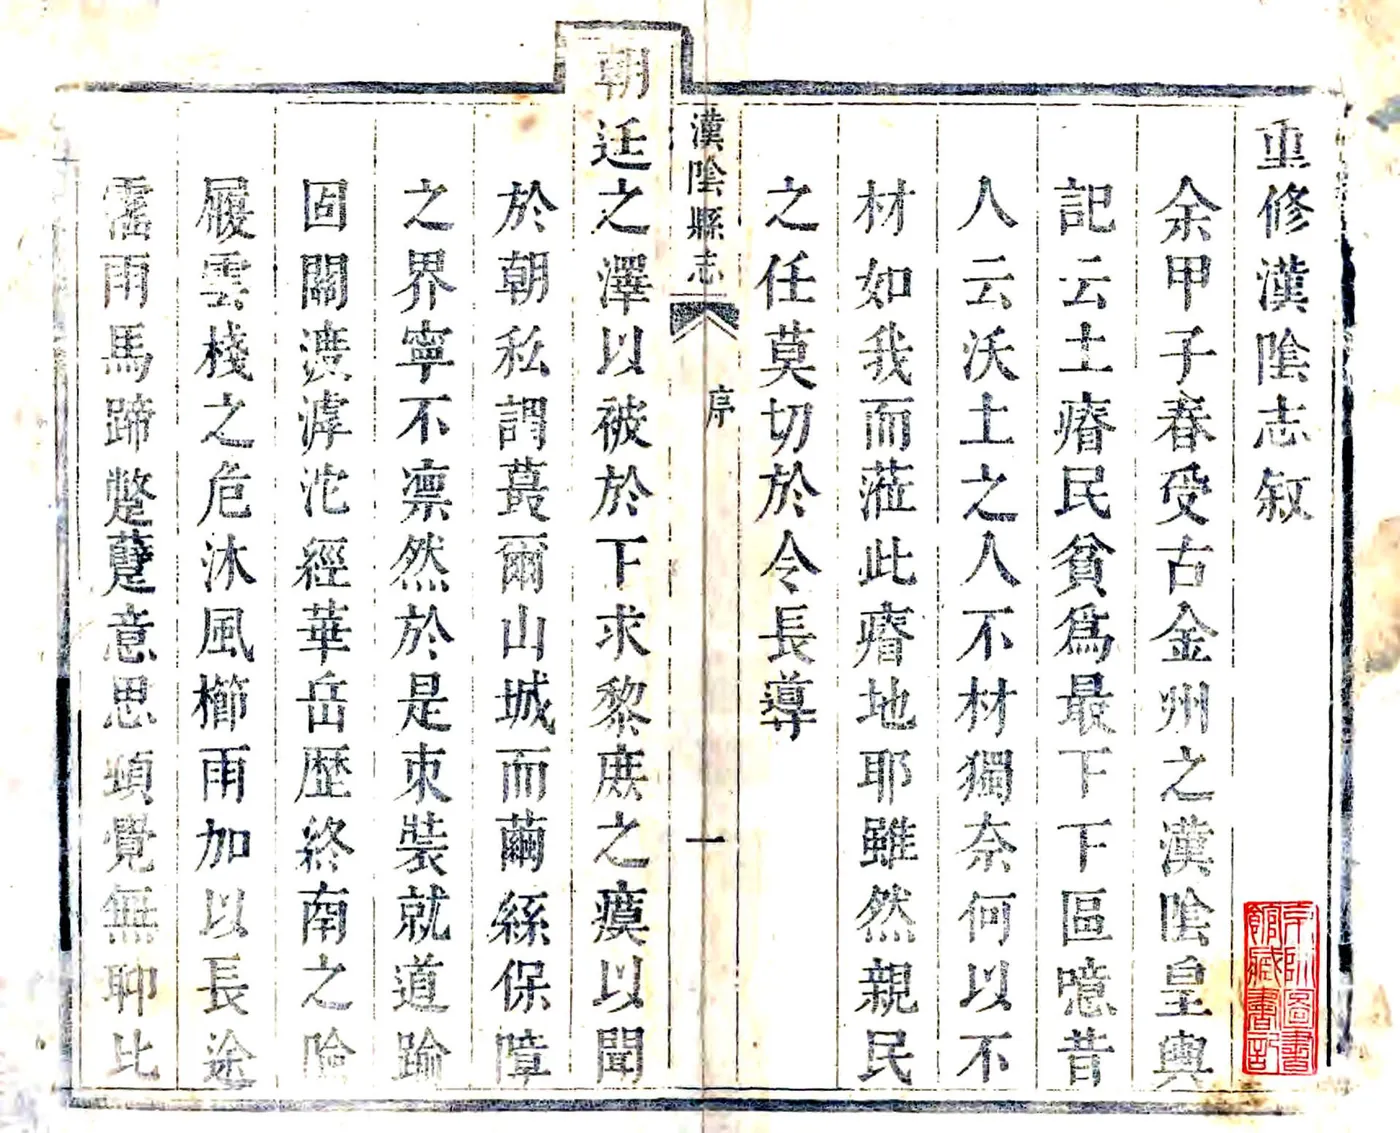 重修漢陰志叙
余甲子春受古金州之漢陰皇輿
記云土瘠民貧為最下下區噫昔
人云沃土之人不材獨奈何以不
材如我而蒞此瘠地耶雖然親民
之任莫切於令長導
漢陰縣志
序
一
朝
廷之澤以被於下求黎庶之瘼以聞
於朝私謂蕞爾山城而繭絲保障
之界寧不凛然於是束裝就道踰
固關渡滹沱經華岳歷終南之險
履雲棧之危沐風櫛雨加以長途
霪雨馬蹄蹩躠意思頓覺無聊比